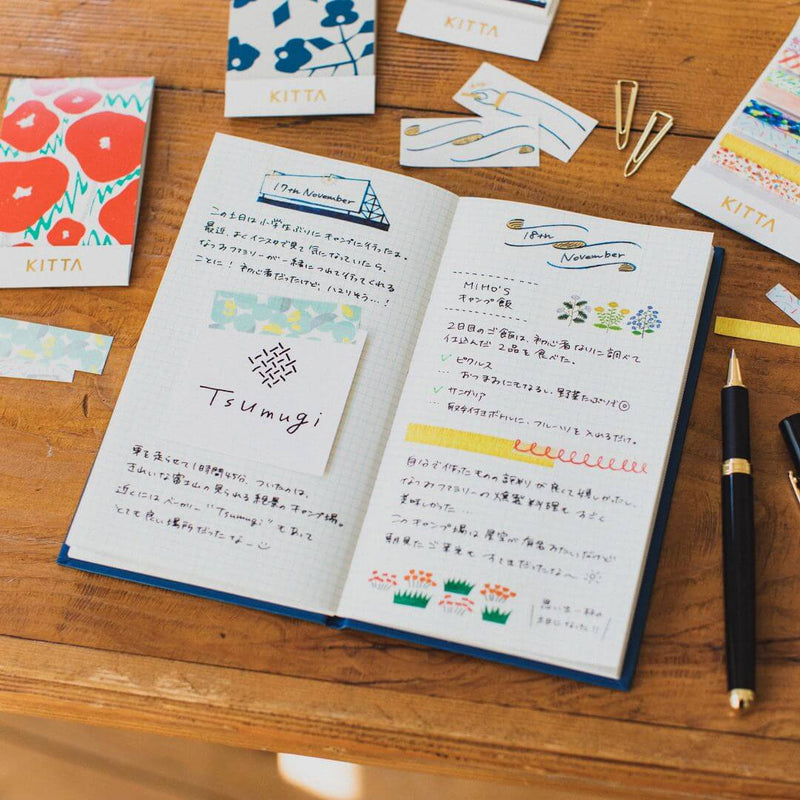 KITTA
KITTA
KITTA
KITTA
17th November
この土日は小学生ぶりにキャンプに行ったよ。
最近、よくインスタで見て気になっていたら、
なつみファミリーが一緒につれて行ってくれる
ことに！初心者だったけど、ハマりそう…！
Tsumugi
車を走らせて1時間45分。ついたのは、
きれいな富士山の見られる絶景のキャンプ場。
近くにはベーカリー "Tsumugi" もあって
とても良い場所だったなー
18th
November
MIHO'S
キャンプ飯
2日目のご飯は、初心者なりに調べて
仕込んだ 2品を食べた。
✓ ピクルス
… おつまみにもなるし、野菜たっぷり◎
✓ サングリア
… 取手付きボトルに、フルーツを入れるだけ。
自分で作ったものの評判が良くて嬉しかったし、
なつみファミリーの燻製料理もすごく
美味しかった…
このキャンプ場は星空が有名みたいだけど
朝見たご来光もすてきだったな〜
思い出一杯の
土日になった!!